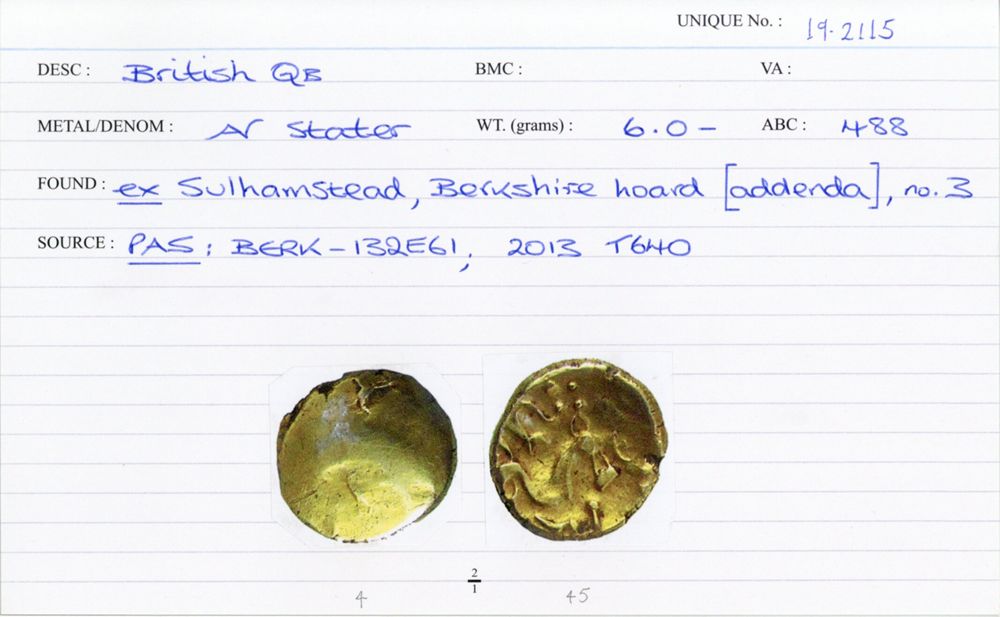 UNIQUE No. : 19.2115
DESC : British QB BMC : VA :
METAL/DENOM : AV Stater WT. (grams) : 6.0 – ABC : 488
FOUND : ex Sulhamstead, Berkshire hoard [addenda], no. 3
SOURCE : PAS: BERK-132E61, 2013 T640
2
1
4 45